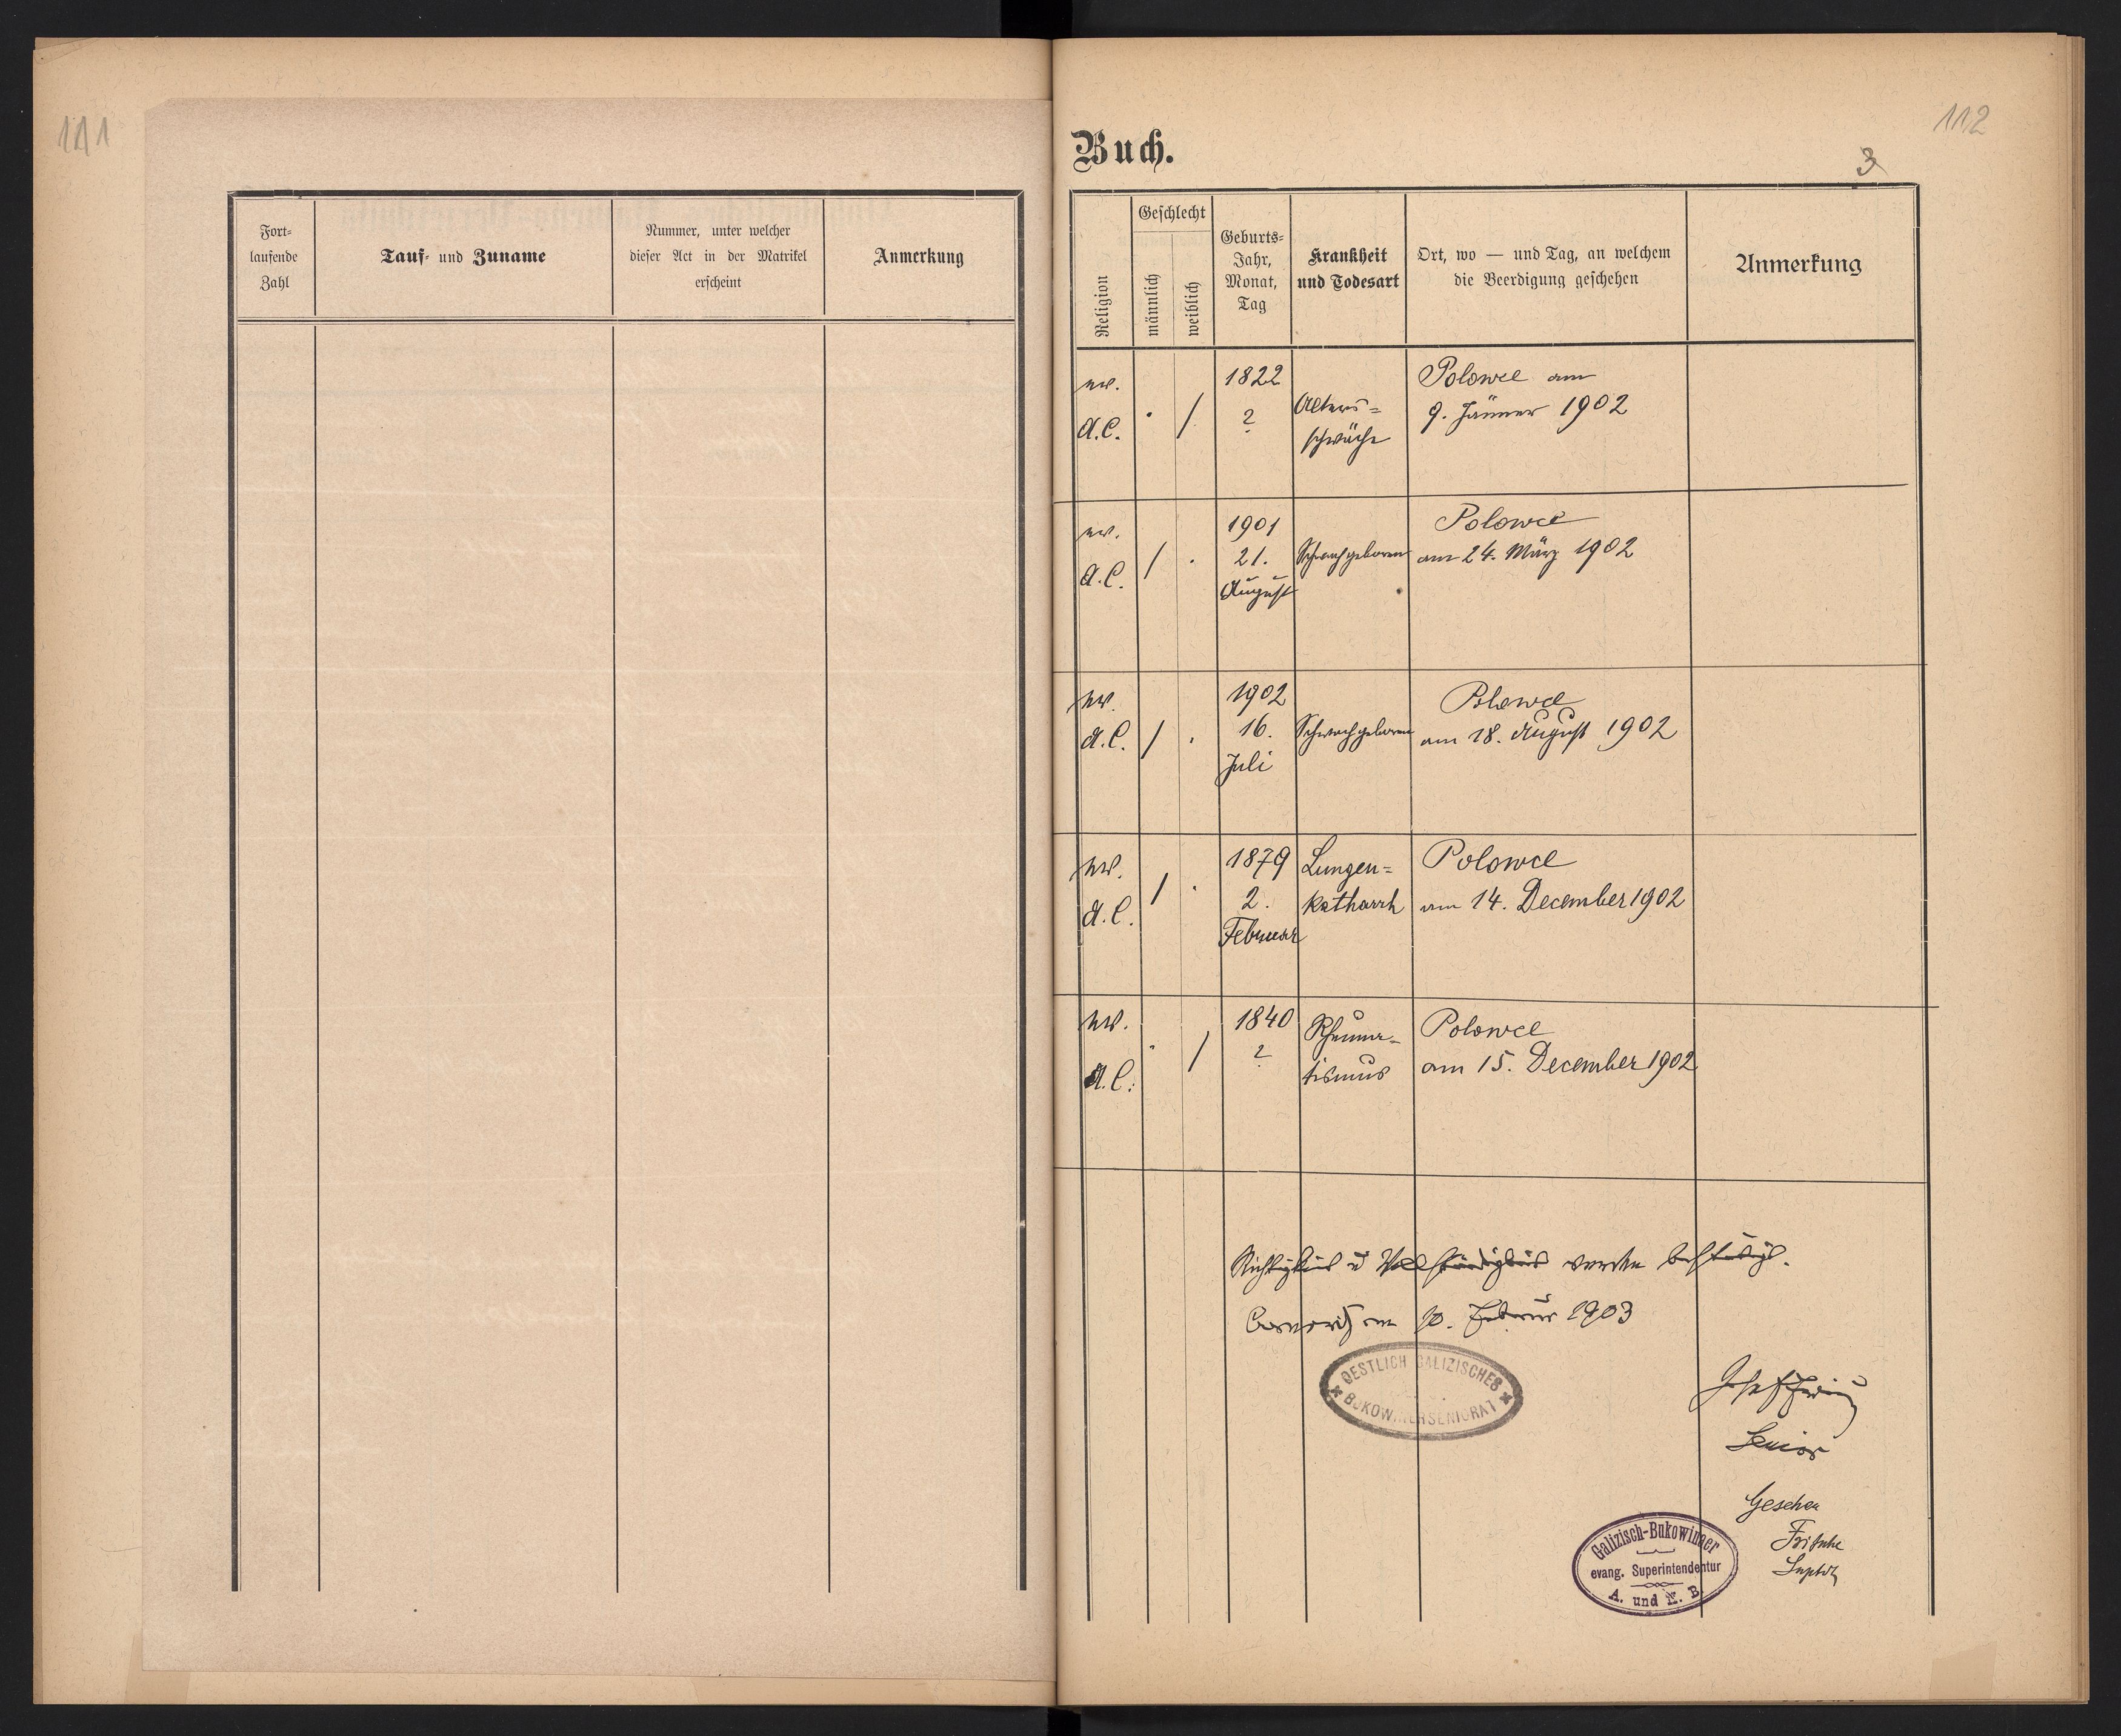 111
Fort-
laufende
Zahl
Tauf- und Zuname
Nummer, unter welcher
dieser Act in der Matrikel
erscheint
Anmerkung
112
3
Buch.
Religion
Geschlecht
männlich
weiblich
Geburts-
Jahr,
Monat,
Tag
Krankheit
und Todesart
Ort, wo — und Tag, an welchem
die Beerdigung geschehen
Anmerkung
ev.
A.C.
/
1822
?
Alters=
schwäche
Polowce am
9. Jänner 1902
ev.
A.C.
/
1901
21.
August
Schwachgeboren
Polowce
am 24. März 1902
ev.
A.C.
/
1902
16.
Juli
Schwachgeboren
Polowce
am 18. August 1902
ev.
A.C.
/
1879
2.
Februar
Lungen=
katharrh
Polowce
am 14. December 1902
ev.
A.C.
/
1840
?
Rheuma=
tismus
Polowce
am 15. December 1902
Richtigkeit u Vollständigkeit werden bestätigt.
am 10. Februar 1903
OESTLICH GALIZISCHES
BUKOWINERSENIORAT
Senior
Gesehen
Fritsche
Suptdt
Galizisch-Bukowinaer
evang. Superintendentur
A. und H. B.